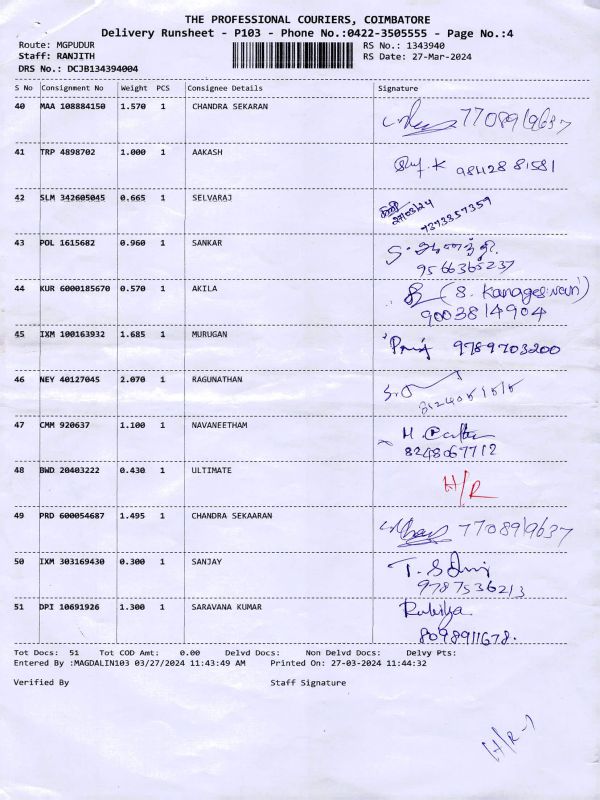 THE PROFESSIONAL COURIERS, COIMBATORE
Delivery Runsheet - P103 - Phone No.:0422-3505555 - Page No.:4
Route: MGPUDUR RS No.: 1343940
Staff: RANJITH RS Date: 27-Mar-2024
DRS No.: DCJB134394004
S No Consignment No Weight PCS Consignee Details Signature
40 MAA 108884150 1.570 1 CHANDRA SEKARAN 7708919637
41 TRP 4898702 1.000 1 AAKASH 98428 81581
42 SLM 342605045 0.665 1 SELVARAJ
27/03/24
7373357359
43 POL 1615682 0.960 1 SANKAR
9566365237
44 KUR 6000185670 0.570 1 AKILA
9003814904
45 IXM 100163932 1.685 1 MURUGAN 9789703200
46 NEY 40127045 2.070 1 RAGUNATHAN
47 CMM 920637 1.100 1 NAVANEETHAM
8248067712
48 BWD 20403222 0.430 1 ULTIMATE H/R
49 PRD 600054687 1.495 1 CHANDRA SEKAARAN 7708919637
50 IXM 303169430 0.300 1 SANJAY
9787536213
51 DPI 10691926 1.300 1 SARAVANA KUMAR
8098911678.
Tot Docs: 51 Tot COD Amt: 0.00 Delvd Docs: Non Delvd Docs: Delvy Pts:
Entered By :MAGDALIN103 03/27/2024 11:43:49 AM Printed On: 27-03-2024 11:44:32
Verified By Staff Signature
H/R-1